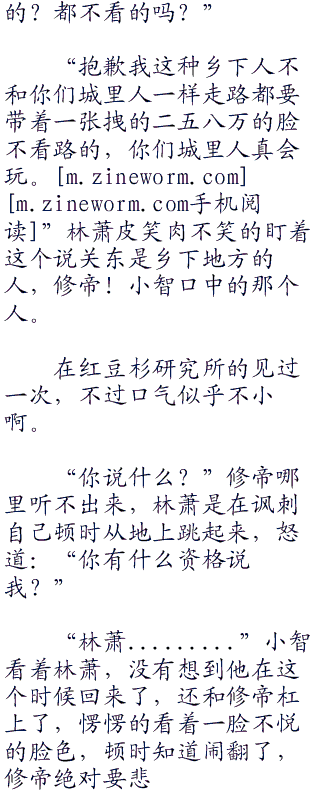 的？都不看的吗？”
“抱歉我这种乡下人不
和你们城里人一样走路都要
带着一张拽的二五八万的脸
不看路的，你们城里人真会
玩。[m.zineworm.com]
[m.zineworm.com手机阅
读]”林萧皮笑肉不笑的盯着
这个说关东是乡下地方的
人，修帝！小智口中的那个
人。
在红豆杉研究所的见过
一次，不过口气似乎不小
啊。
“你说什么？”修帝哪
里听不出来，林萧是在讽刺
自己顿时从地上跳起来，怒
道：“你有什么资格说
我？”
“林萧.........”小智
看着林萧，没有想到他在这
个时候回来了，还和修帝杠
上了，愣愣的看着一脸不悦
的脸色，顿时知道闹翻了，
修帝绝对要悲